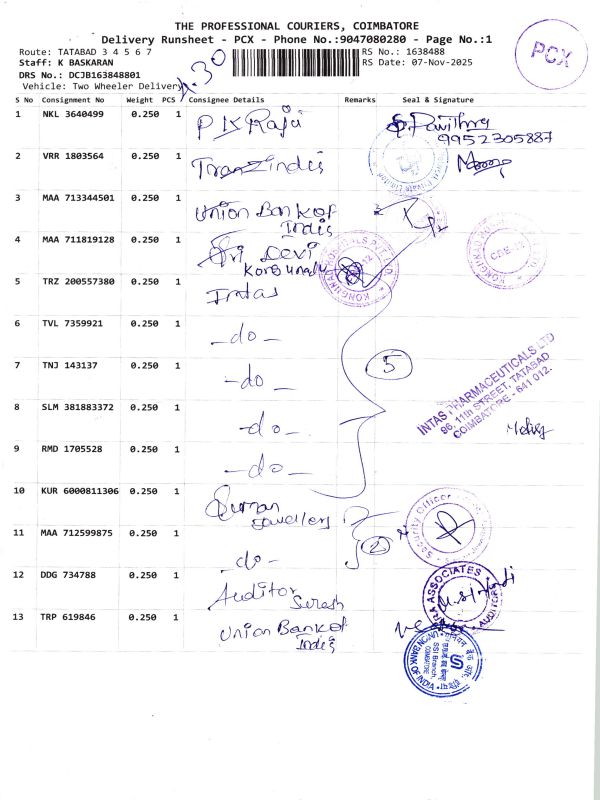 THE PROFESSIONAL COURIERS, COIMBATORE
Delivery Runsheet - PCX - Phone No.:9047080280 - Page No.:1
Route: TATABAD 3 4 5 6 7
RS No.: 1638488
Staff: K BASKARAN
RS Date: 07-Nov-2025
DRS No.: DCJB163848801
Vehicle: Two Wheeler Delivery
PCX
S No Consignment No Weight PCS / Consignee Details Remarks Seal & Signature
1 NKL 3640499 0.250 1 P K Raju Pavithra
9952305887
2 VRR 1803564 0.250 1 Tranzindis
3 MAA 713344501 0.250 1 Union Bank of
Indis
4 MAA 711819128 0.250 1 Sri Devi
Kongunadu
5 TRZ 200557380 0.250 1 Intas
6 TVL 7359921 0.250 1 -do-
7 TNJ 143137 0.250 1 -do-
5
8 SLM 381883372 0.250 1 -do-
INTAS PHARMACEUTICALS LTD
96, 11th STREET, TATABAD
COIMBATORE - 641 012.
9 RMD 1705528 0.250 1 -do-
10 KUR 6000811306 0.250 1 Suman
Jewellers
Security Officer
11 MAA 712599875 0.250 1 -do-
2
12 DDG 734788 0.250 1 Auditor
Suresh
ASSOCIATES
AUDITOR
13 TRP 619846 0.250 1 Union Bank of
Indis
UNION BANK OF INDIA
SSI Branch,
COIMBATORE